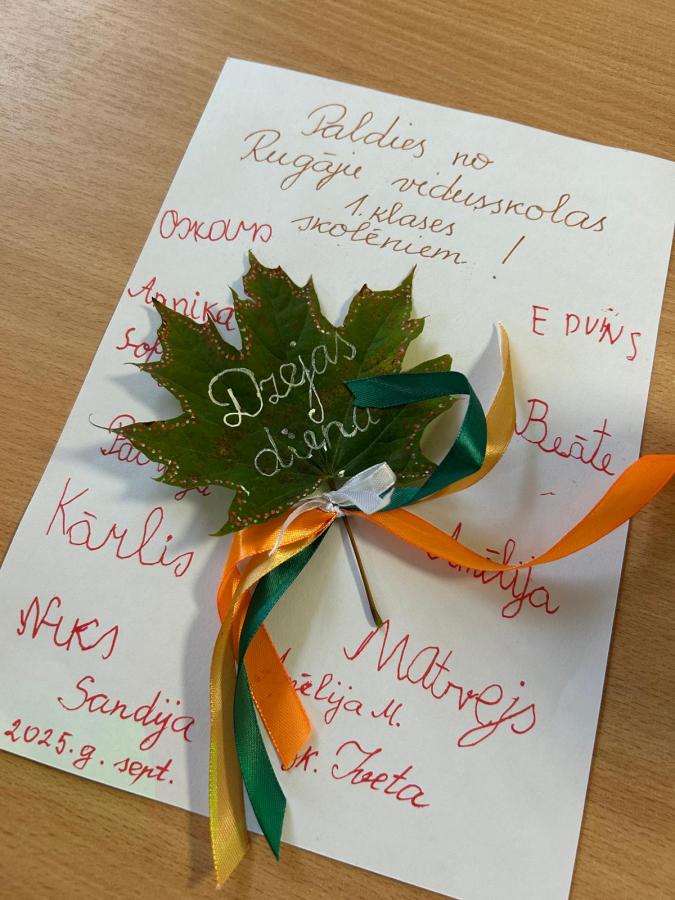 Paldies no
Rugāju vidusskolas
1. klases
skolēniem!
Oskars
Annika
Dzejas
diena
EDVĪNS
Beāte
Kārlis
Amēlija
Niks
Matvejs
Sandija
Amēlija M.
2025. g. sept.
sk. Iveta